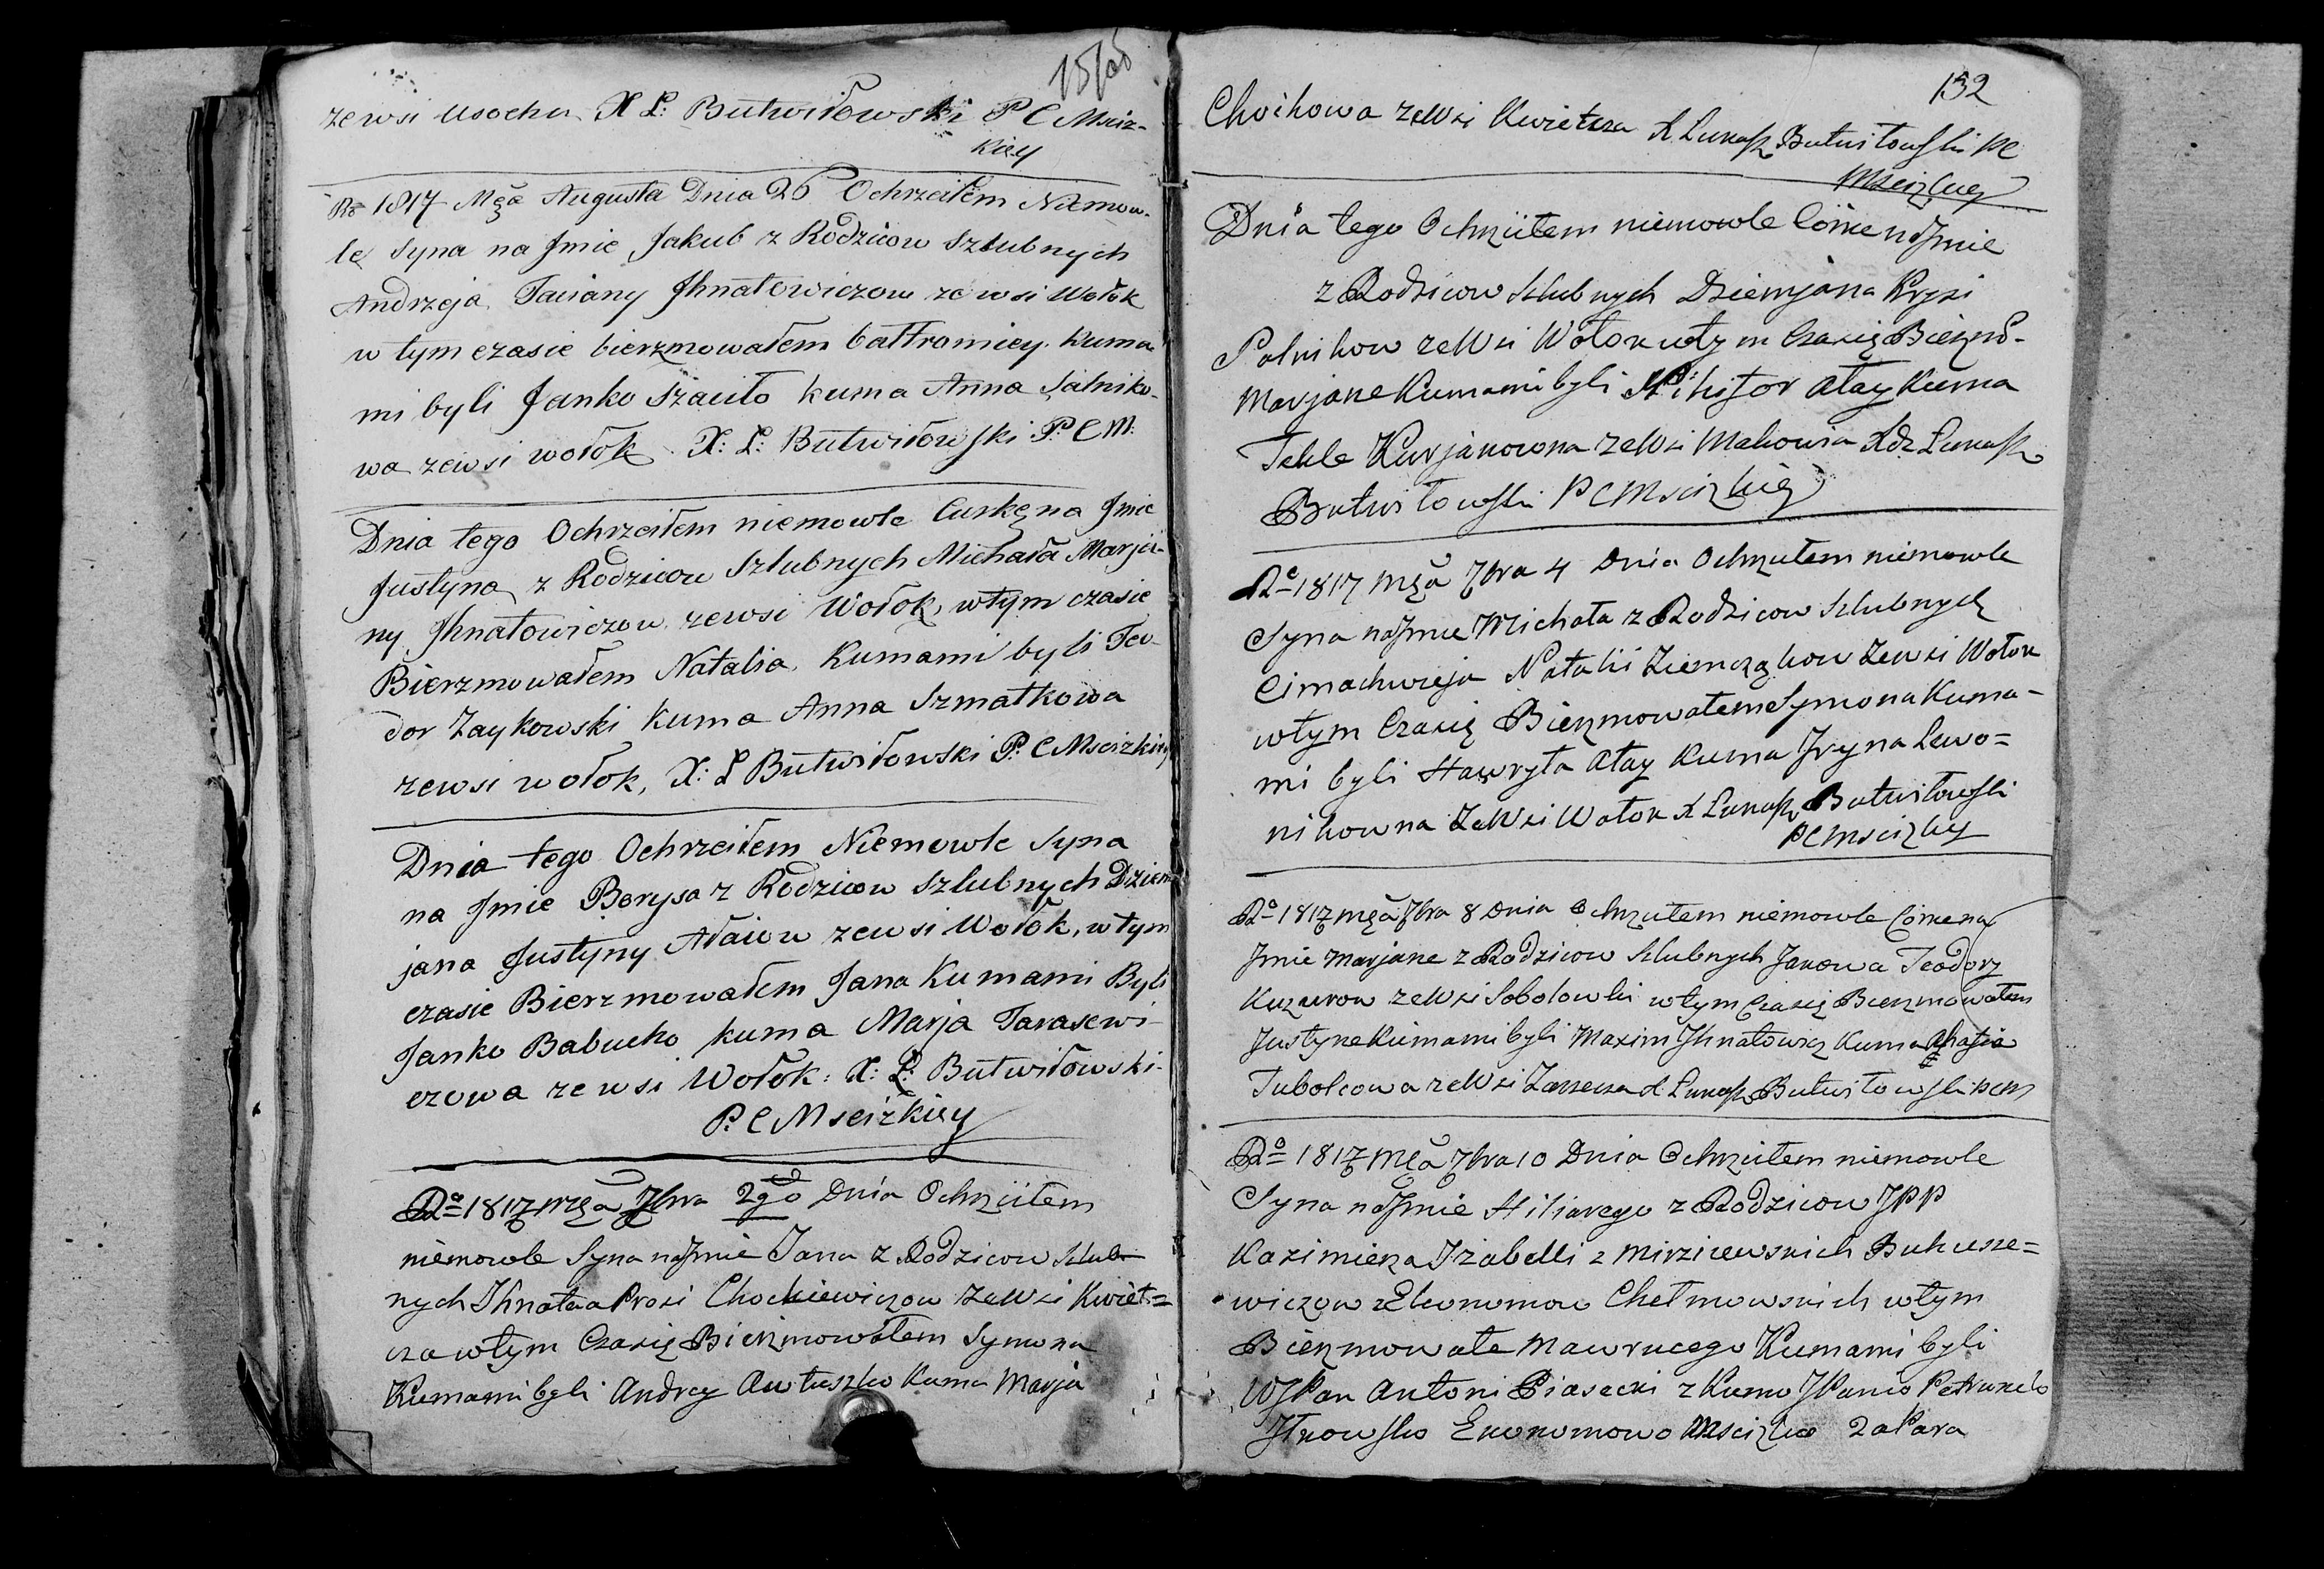 zewsi Usocha X Ł: Butwiłowski P C Msciz-
kiey
Ro 1817 Mca Augusta Dnia 26 Ochrzciłem Niemow-
le Syna na Jmie Jakub z Rodzicow Szlubnych
Andrzeja Taciany Jhnatowiczow zewsi Wołok
w tym czasie bierzmowałem bałtromiey. Kuma
mi byli Janko Szauło kuma Anna Salniko-
wa zewsi wołok X: Ł: Butwiłowski P. C M.
Dnia tego Ochrzciłem niemowle Curkę na Jmie
Justyna z Rodzicow Szlubnych Michała Marja-
ny Jhnatowiczow zewsi Wołok, wtym czasie
Bierzmowałem Natalia. Kumami byli Teo-
dor Zaykowski Kuma Anna Szmatkowa
zewsi wołok, X: Ł Butwiłowski P. C Mscizkiey
Dnia tego Ochrzciłem Niemowle Syna
na Jmie Borysa z Rodzicow Szlubnych Dziem
jana Justyny Ałaiow zewsi Wołok, w tym
czasie Bierzmowałem Jana Kumami Byli
Janko Babucho kuma Marja Tarasewi-
czowa zewsi Wołok: X: Ł: Butwiłowski-
P. C Mscizkiey
Ro 1817 mca 7bra 2go Dnia Ochrzciłem
niemowle Syna na Jmie Jana z Rodzicow Szlub
nych Jhnata Prosi Chockiewiczow zeWsi Kwiet=
cza wtym Czasię Bierzmowałem Symona
Kumami byli Andrey Autuszko Kuma Marja
132
Choikowa zeWsi Kwietcza X Łukasz Butwiłowski PC
Mscizkiey
Dnia tego Ochrzciłem niemowle Córke na Jmie
z Rodzicow Szlubnych Dziemjana Krysi
Palnikow zeWsi Wołok wtym Czasię Bierzmo-
Marjane Kumami byli Nikifor Ałay Kuma
Tekle Kurjanowna zeWsi Makowia Xdz Łukasz
Butwiłowski P C Mscizkiey
Ro 1817 mca 7bra 4 Dnia Ochrzciłem niemowle
Syna na Jmie Michała z Rodzicow Szlubnych
Cimachwieja Natalii Ziemcząkow zeWsi Wołok
wtym Czasię Bierzmowałem Symona Kuma-
mi byli Hawryła Ałay Kuma Jryna Lewo=
nikowna zeWsi Wołok X Łukasz Butwiłowski
PC Mscizkiey
Ro 1817 mca 7bra 8 Dnia Ochrzciłem niemowle Córke na
Jmie Marjane z Rodzicow Szlubnych Jakowa Teodory
Kuzurow zeWsi Sobolowki wtym Czasię Bierzmowałem
Justyne Kumami byli Maxim Jhnatowicz Kuma Ahafia
Tubolcowa zeWsi X Łukasz Butwiłowski PCM
Ro 1817 mca 7bra 10 Dnia Ochrzciłem niemowle
Syna na Jmie Hilarego z Rodzicow JPP
Kazimierza Jzabelli z Mirzicewskich Bukusze=
wiczow Ekonomow Chełmowskich wtym
Bierzmowałe Mawrucego Kumami byli
WJPan Antoni Piasecki z Kumo JPanio Petrunelo
Jłkowsko Ekonomowo Mscizko 2a Para